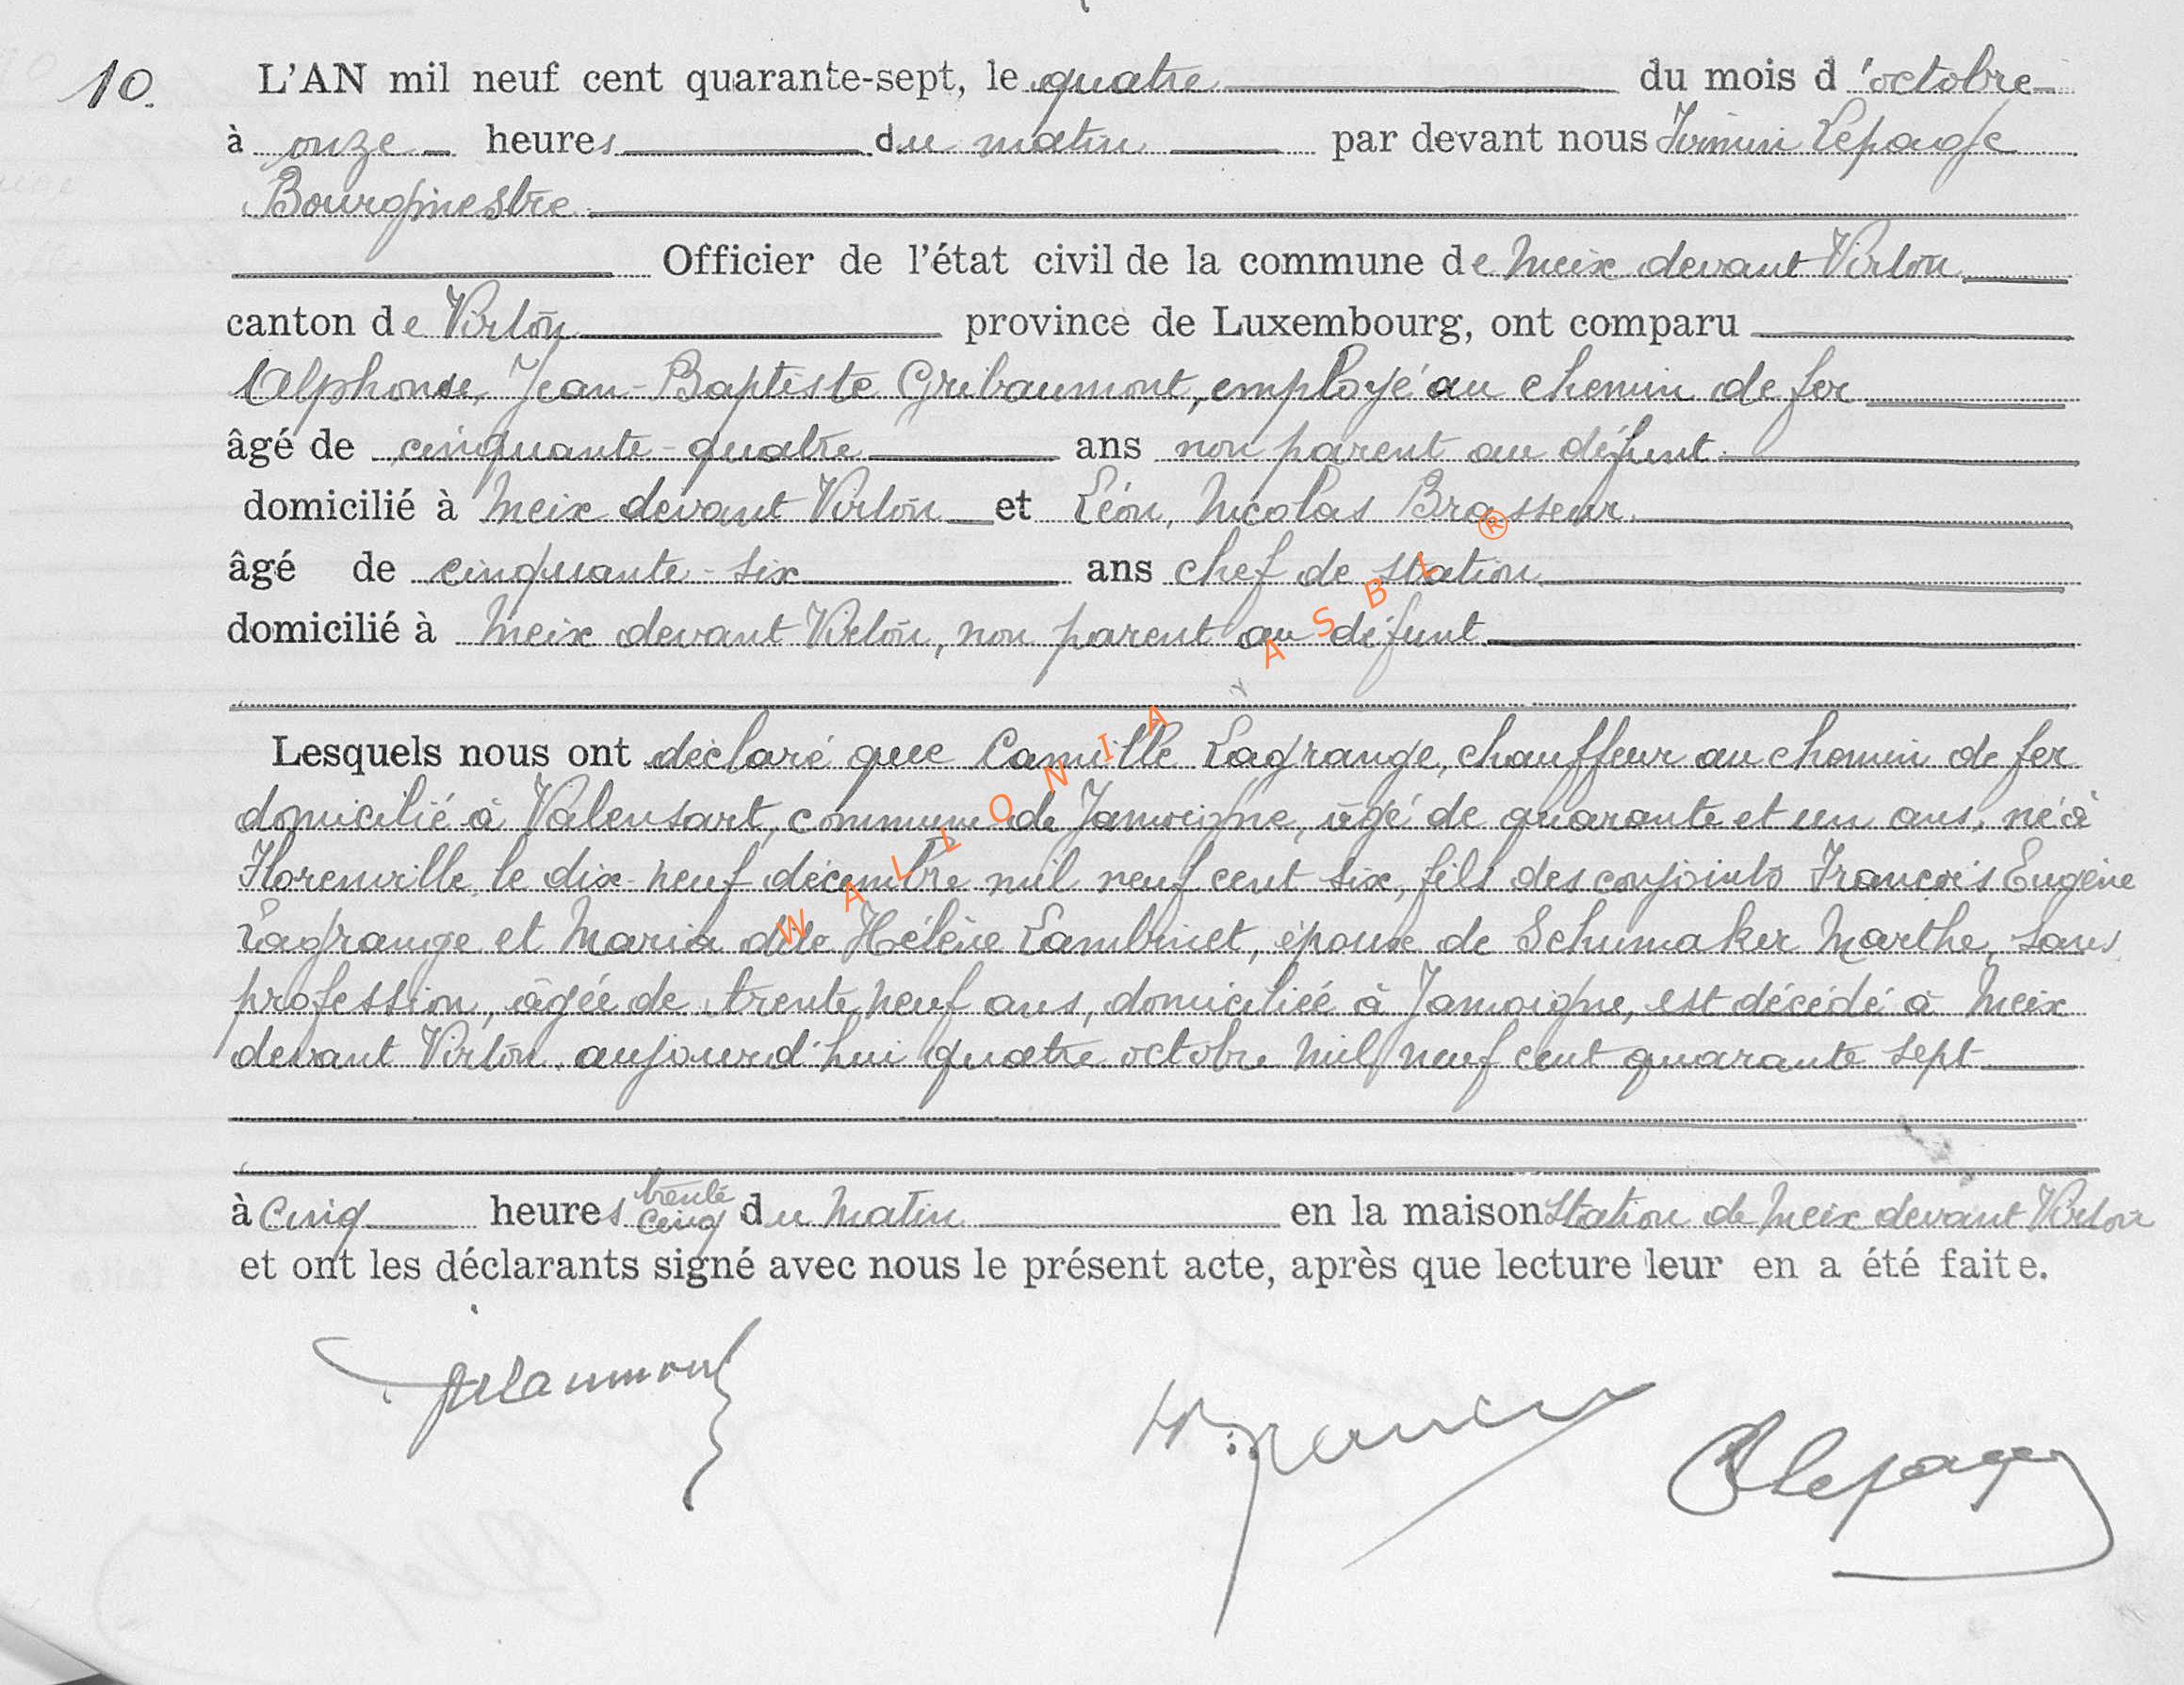 10. L'AN mil neuf cent quarante-sept, le quatre du mois d'octobre
à onze heures du matin par devant nous Firmin Lepage
Bourgmestre
Officier de l'état civil de la commune de Meix devant Virton
canton de Virton province de Luxembourg, ont comparu
Alphonse, Jean-Baptiste Gribaumont, employé au chemin de fer
âgé de cinquante-quatre ans non parent au défunt
domicilié à Meix devant Virton et Léon, Nicolas Brasseur
âgé de cinquante-six ans chef de station
domicilié à Meix devant Virton, non parent au défunt
Lesquels nous ont déclaré que Camille Lagrange, chauffeur au chemin de fer
domicilié à Valensart, commune de Jamoigne, âgé de quarante et un ans, né à
Florenville, le dix-neuf décembre mil neuf cent six, fils des conjoints François Eugène
Lagrange et Maria dite Hélène Lambinet, époux de Schumaker Marthe, sans
profession, âgée de trente neuf ans, domiciliée à Jamoigne, est décédé à Meix
devant Virton, aujourd'hui quatre octobre mil neuf cent quarante sept
à cinq heures trente cinq du matin en la maison station de Meix devant Virton
et ont les déclarants signé avec nous le présent acte, après que lecture leur en a été faite.
WALLONIA ASBL ®